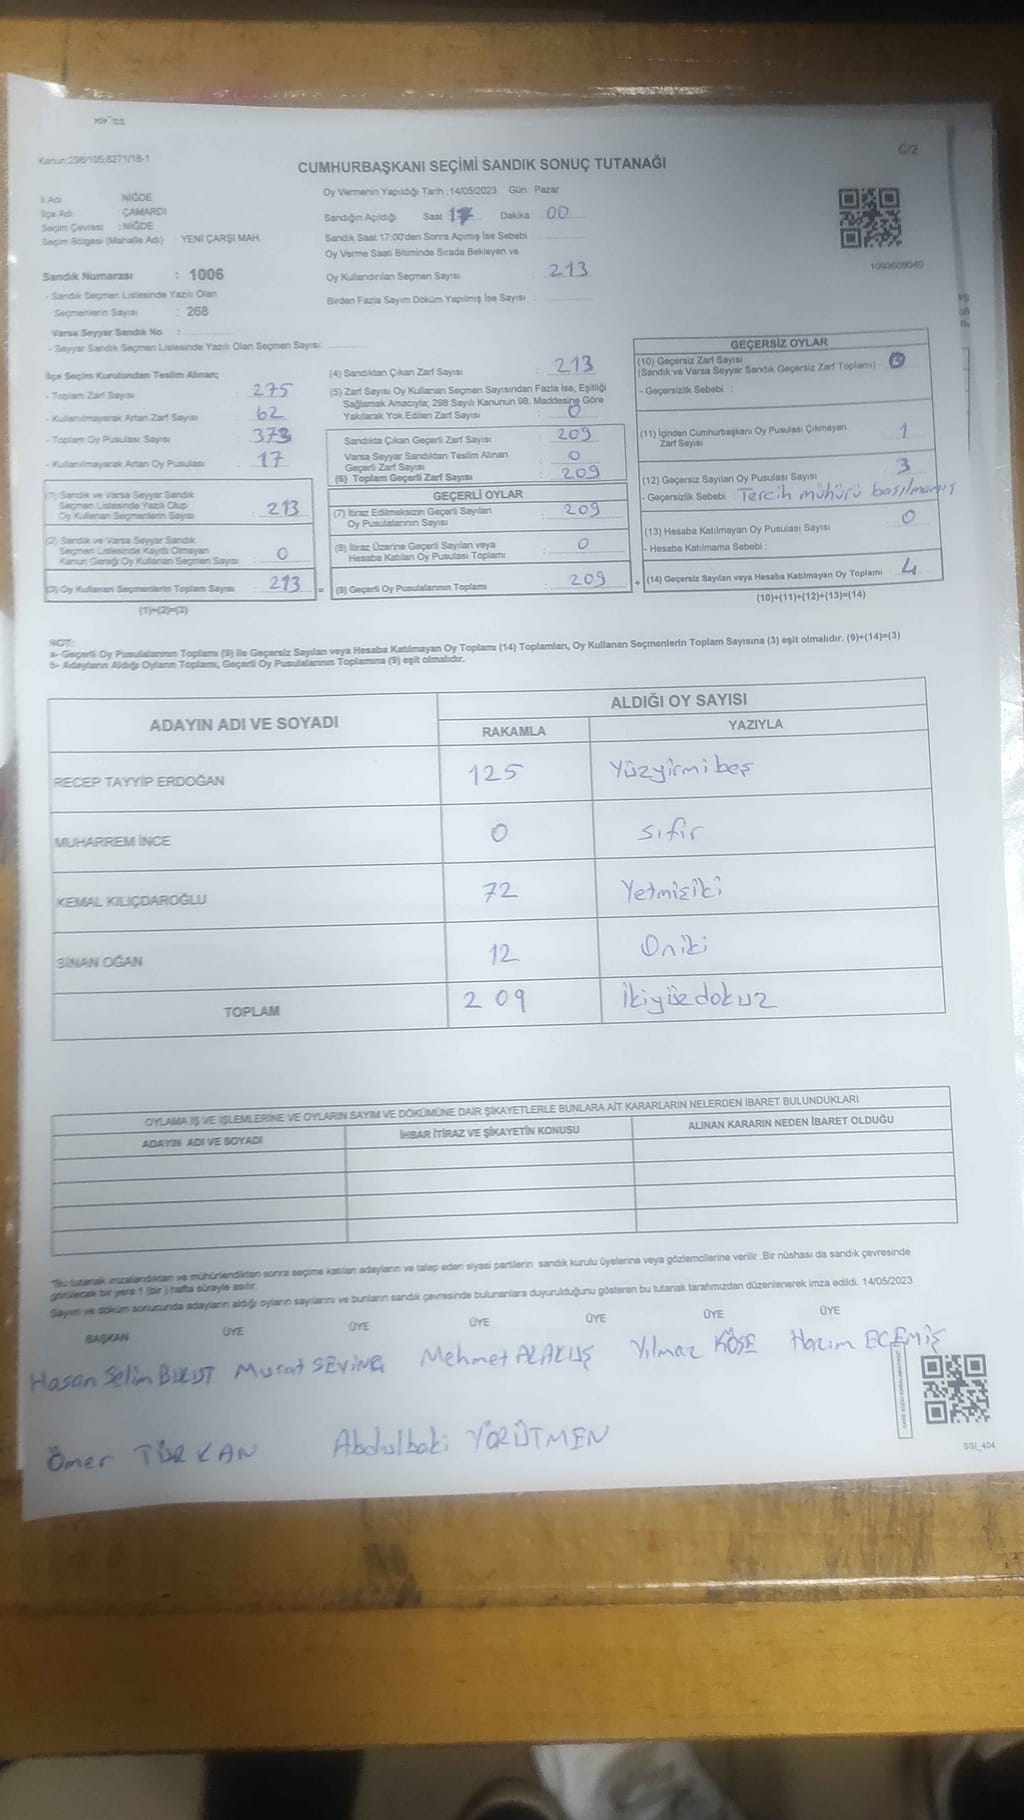 SSI_404
Kanun:298/105;6271/18-1
C/2
CUMHURBAŞKANI SEÇİMİ SANDIK SONUÇ TUTANAĞI
İl Adı : NİĞDE
İlçe Adı : ÇAMARDI
Seçim Çevresi : NİĞDE
Seçim Bölgesi (Mahalle Adı) : YENİ ÇARŞI MAH.
Sandık Numarası : 1006
- Sandık Seçmen Listesinde Yazılı Olan
Seçmenlerin Sayısı : 268
Varsa Seyyar Sandık No :
- Seyyar Sandık Seçmen Listesinde Yazılı Olan Seçmen Sayısı:
Oy Vermenin Yapıldığı Tarih : 14/05/2023 Gün : Pazar
Sandığın Açıldığı Saat 17 Dakika : 00
Sandık Saat 17:00'den Sonra Açımış İse Sebebi
Oy Verme Saati Bitiminde Sırada Bekleyen ve
Oy Kullandırılan Seçmen Sayısı : 213
Birden Fazla Sayım Döküm Yapılmış İse Sayısı :
1093609040
İlçe Seçim Kurulundan Teslim Alınan;
- Toplam Zarf Sayısı : 275
- Kullanılmayarak Artan Zarf Sayısı : 62
- Toplam Oy Pusulası Sayısı : 373
- Kullanılmayarak Artan Oy Pusulası : 17
(1) Sandık ve Varsa Seyyar Sandık
Seçmen Listesinde Yazılı Olup
Oy Kullanan Seçmenlerin Sayısı : 213
(2) Sandık ve Varsa Seyyar Sandık
Seçmen Listesinde Kayıtlı Olmayan
Kanun Gereği Oy Kullanan Seçmen Sayısı : 0
(3) Oy Kullanan Seçmenlerin Toplam Sayısı : 213
(1)+(2)=(3)
(4) Sandıktan Çıkan Zarf Sayısı : 213
(5) Zarf Sayısı Oy Kullanan Seçmen Sayısından Fazla İse, Eşitliği
Sağlamak Amacıyla, 298 Sayılı Kanunun 98. Maddesine Göre
Yakılarak Yok Edilen Zarf Sayısı : 0
Sandıkta Çıkan Geçerli Zarf Sayısı : 209
Varsa Seyyar Sandıktan Teslim Alınan
Geçerli Zarf Sayısı : 0
(6) Toplam Geçerli Zarf Sayısı : 209
GEÇERLİ OYLAR
(7) İtiraz Edilmeksizin Geçerli Sayılan
Oy Pusulalarının Sayısı : 209
(8) İtiraz Üzerine Geçerli Sayılan veya
Hesaba Katılan Oy Pusulası Toplamı : 0
= (9) Geçerli Oy Pusulalarının Toplamı : 209 +
GEÇERSİZ OYLAR
(10) Geçersiz Zarf Sayısı
(Sandık ve Varsa Seyyar Sandık Geçersiz Zarf Toplamı) : 0
- Geçersizlik Sebebi :
(11) İçinden Cumhurbaşkanı Oy Pusulası Çıkmayan
Zarf Sayısı : 1
(12) Geçersiz Sayılan Oy Pusulası Sayısı : 3
- Geçersizlik Sebebi : Tercih mühürü basılmamış
(13) Hesaba Katılmayan Oy Pusulası Sayısı : 0
- Hesaba Katılmama Sebebi :
(14) Geçersiz Sayılan veya Hesaba Katılmayan Oy Toplamı : 4
(10)+(11)+(12)+(13)=(14)
NOT:
a- Geçerli Oy Pusulalarının Toplamı (9) ile Geçersiz Sayılan veya Hesaba Katılmayan Oy Toplamı (14) Toplamları, Oy Kullanan Seçmenlerin Toplam Sayısına (3) eşit olmalıdır. (9)+(14)=(3)
b- Adayların Aldığı Oyların Toplamı, Geçerli Oy Pusulalarının Toplamına (9) eşit olmalıdır.
ADAYIN ADI VE SOYADI
ALDIĞI OY SAYISI
RAKAMLA YAZIYLA
RECEP TAYYİP ERDOĞAN 125 Yüzyirmibeş
MUHARREM İNCE 0 sıfır
KEMAL KILIÇDAROĞLU 72 Yetmişiki
SİNAN OĞAN 12 Oniki
TOPLAM 209 ikiyüzdokuz
OYLAMA İŞ VE İŞLEMLERİNE VE OYLARIN SAYIM VE DÖKÜMÜNE DAİR ŞİKAYETLERLE BUNLARA AİT KARARLARIN NELERDEN İBARET BULUNDUKLARI
ADAYIN ADI VE SOYADI İHBAR İTİRAZ VE ŞİKAYETİN KONUSU ALINAN KARARIN NEDEN İBARET OLDUĞU
"Bu tutanak imzalandıktan ve mühürlendikten sonra seçime katılan adayların ve talep eden siyasi partilerin sandık kurulu üyelerine veya gözlemcilerine verilir .Bir nüshası da sandık çevresinde
görülecek bir yere 1 (bir ) hafta süreyle asılır.
Sayım ve döküm sonucunda adayların aldığı oyların sayılarını ve bunların sandık çevresinde bulunanlara duyurulduğunu gösteren bu tutanak tarafımızdan düzenlenerek imza edildi. 14/05/2023
BAŞKAN ÜYE ÜYE ÜYE ÜYE ÜYE ÜYE
Hasan Selim BULUT Murat SEVİNÇ Mehmet ALAKUŞ Yılmaz KÖSE Hazım ECEMİŞ
Ömer TÜRKAN Abdulbaki YÖRÜTMEN
SSI_404